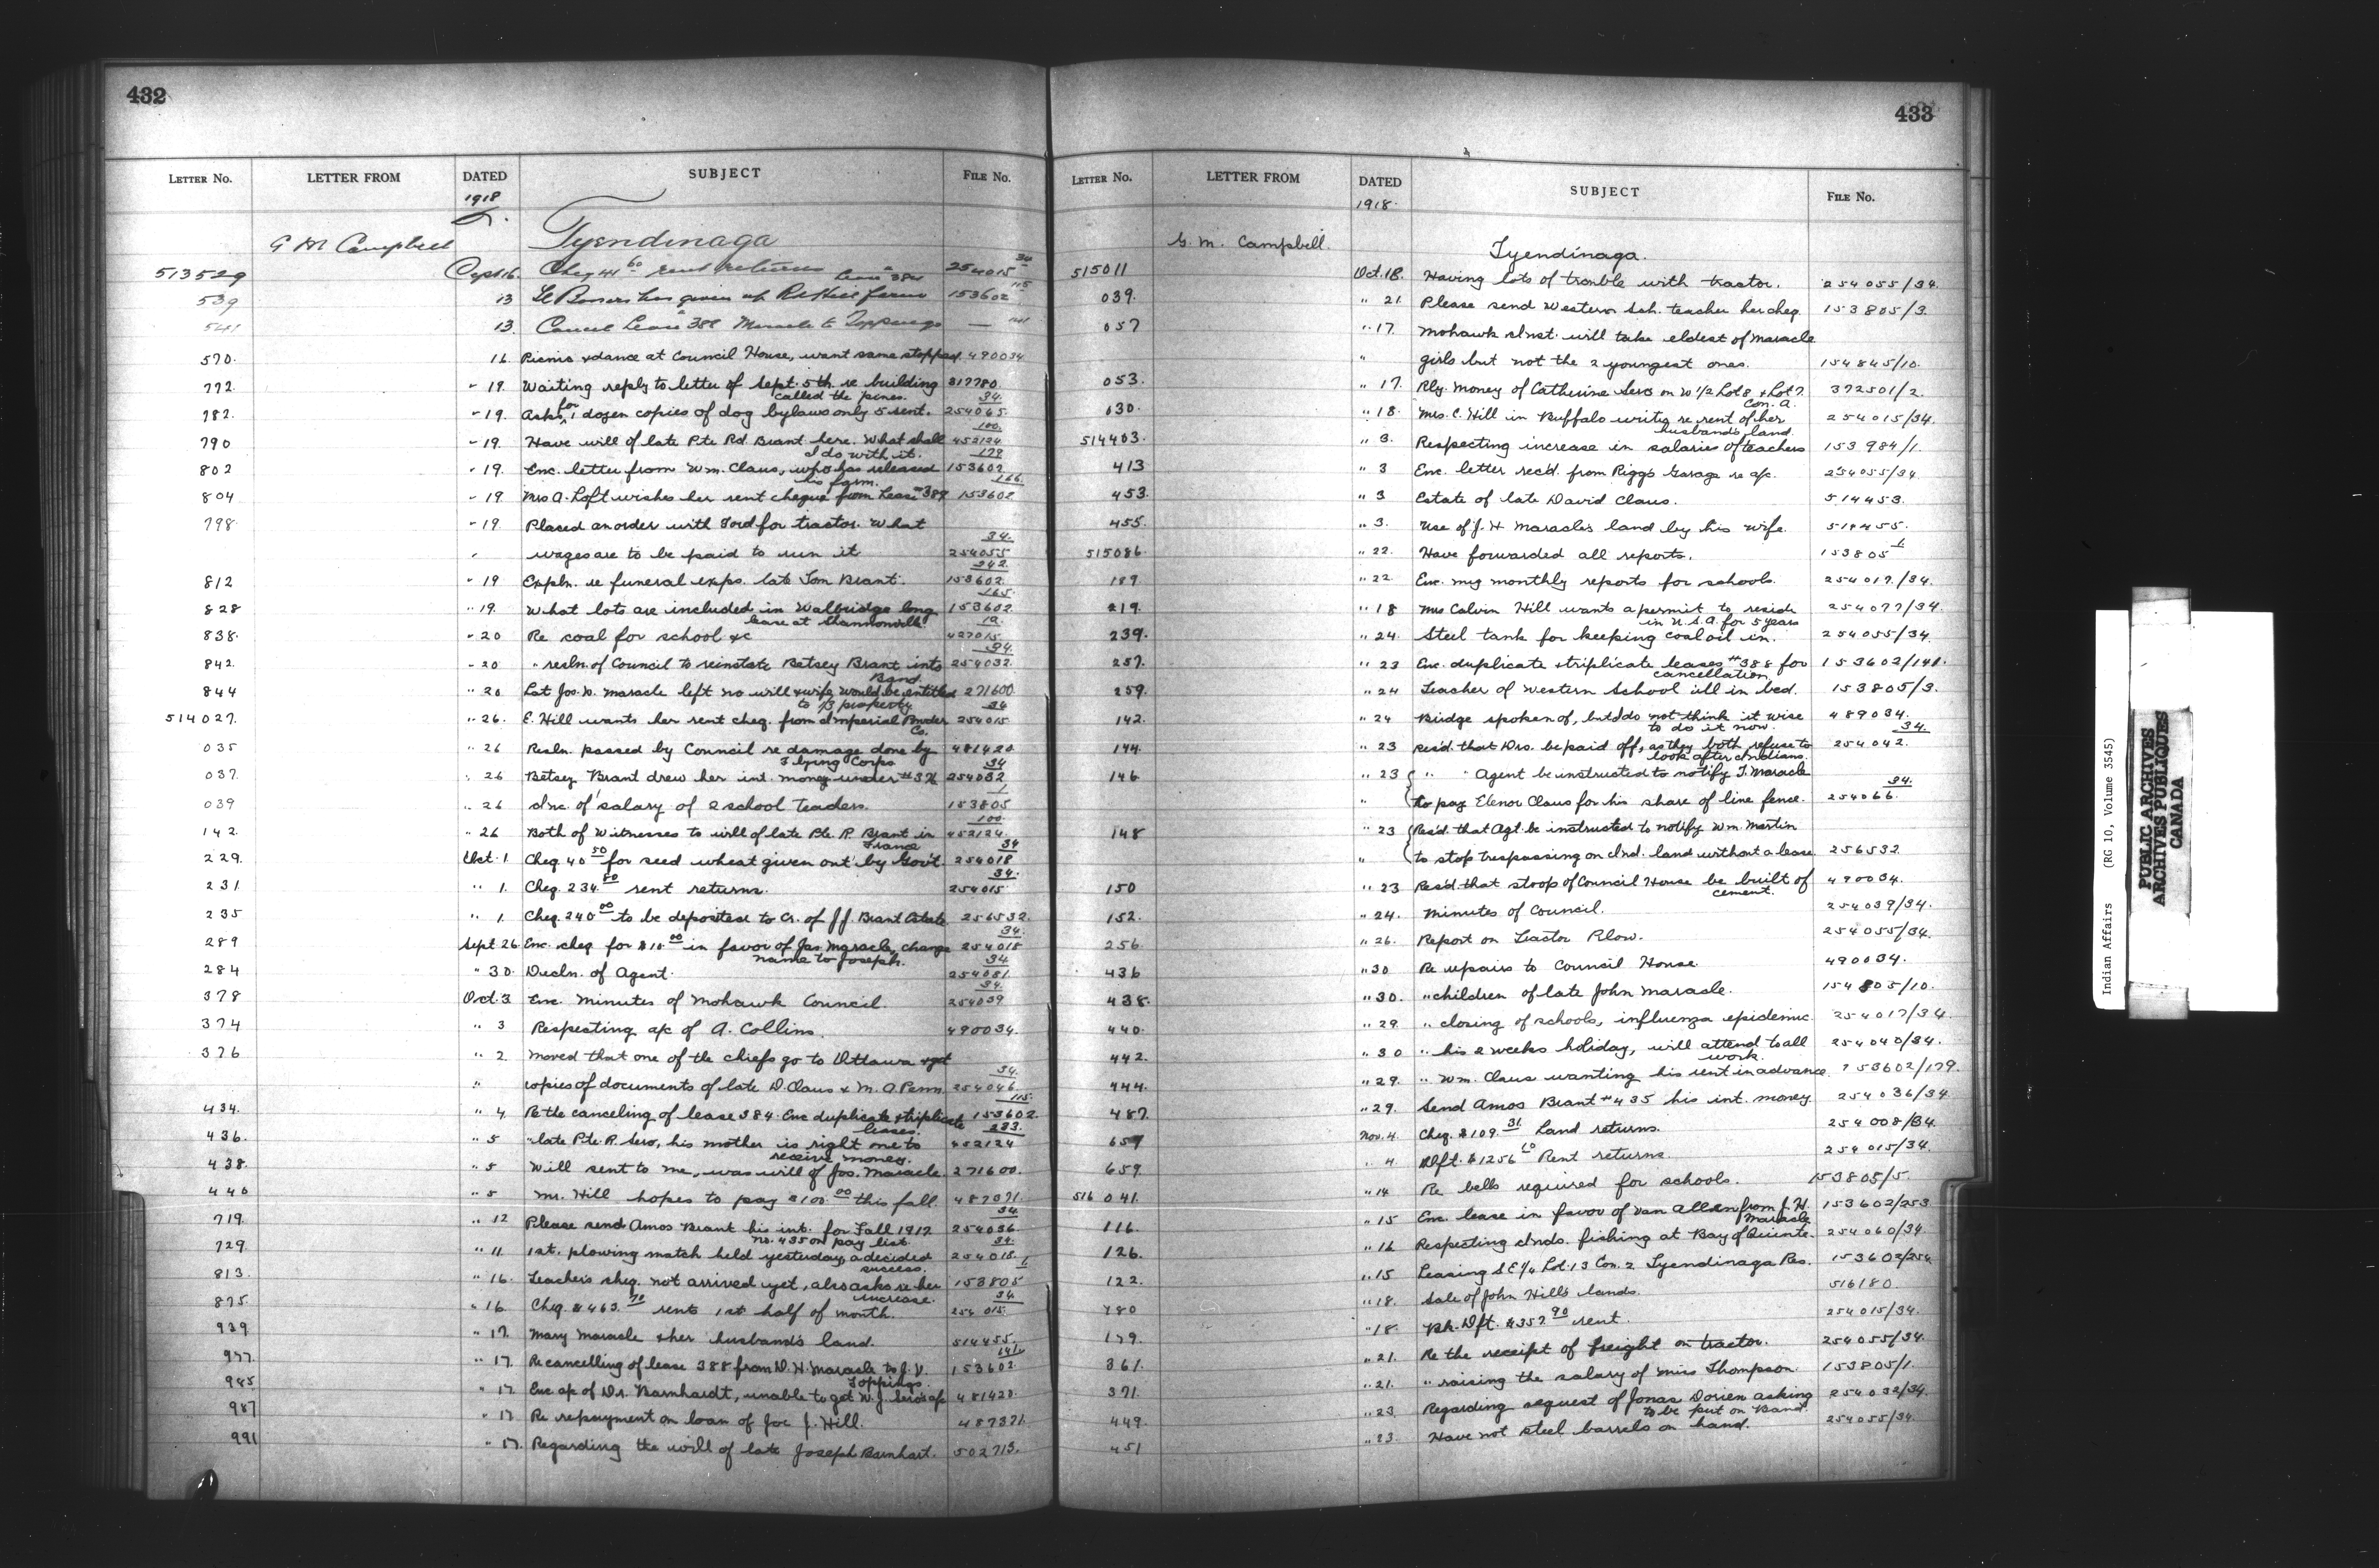 432
LETTER No. LETTER FROM DATED SUBJECT FILE No.
1918
G M Campbell Tyendinaga
513529 Sept 16. Cheq 41 60 rent returns Lease # 384 254015 34
539 13 has given up farm 153602 115
541 13. Cancel Lease # 388 Maracle to Toppings — 141
570. 16. Picnic & dance at Council House, want same stopped. 490034
772. " 19. Waiting reply to letter of Sept. 5th re building 317780.
called the pines. 34.
782. " 19. Asks for 1 dozen copies of dog bylaws only 5 sent. 254065.
100.
790 " 19. Have will of late Pte Rd. Brant here. What shall 452124
I do with it. 179
802 " 19. Enc. letter from Wm. Claus, who has released 153602
his farm. 166.
804 " 19 Mrs A. Loft wishes her rent cheque from Lease #389 153602
798. " 19. Placed an order with Ford for tractor. What
34.
" wages are to be paid to run it 254055
242.
812 " 19 Expln. re funeral exps. late Tom Brant. 153602.
165.
828 " 19. What lots are included in Walbridge long 153602.
lease at Shannonville. 19.
838. " 20 Re coal for school &c 427015.
34.
842. " 20 " resln. of Council to reinstate Betsey Brant into 254032.
Band.
844 " 20 Lat Jos. D. Maracle left no will & wife would be entitled 271600
to 1/3 property 34
514027. " 26. E. Hill wants her rent cheq. from Imperial Powder 254015.
Co.
035 " 26 Resln. passed by Council re damage done by 481420.
Flying Corps 34
037. " 26 Betsey Brant drew her int. money under #376 254032
1
039 " 26 Inc. of salary of 2 school teachers. 153805
100.
142. " 26 Both of Witnesses to will of late Pte. R. Brant in 452124.
France 34
229. Oct. 1 Cheq. 40 50 for seed wheat given out by Gov't. 254018
34.
231 " 1. Cheq. 234. 80 rent returns. 254015
235 " 1. Cheq. 240 00 to be deposited to Cr. of J.J. Brant Estate 256532.
34.
289 Sept 26 Enc. cheq for $10 00 in favor of Jas. Maracle, change 254018
name to Joseph. 34
284 " 30. Decln. of Agent. 254081.
34.
378 Oct. 3 Enc. Minutes of Mohawk Council. 254039
374 " 3 Respecting a/c of A. Collins. 490034.
376 " 2. Moved that one of the chiefs go to Ottawa & get
34.
" copies of documents of late D. Claus & M. A. Penn. 254046.
115.
434. " 4. Re the canceling of lease 384. Enc duplicate & triplicate 153602.
leases. 233.
436. " 5 " late Pte. R. Sero, his mother is right one to 452124
receive money.
438. " 5 Will sent to me, was will of Jos. Maracle. 271600.
440 " 5 Mr. Hill hopes to pay $100. 00 this fall. 487371.
34
719. " 12 Please send Amos Brant his int. for Fall 1917 254036.
no. 435 on pay list. 34.
729. " 11 1st. plowing match held yesterday, a decided 254018.
success. 1
813. " 16. Teachers cheq. not arrived yet, also asks re her 153805
increase. 34
875. " 16. Cheq. $463. 70 rents 1st half of month. 254015.
939. " 17. Mary Maracle & her husband's land. 514455.
141.
977. " 17. Re cancelling of lease 388 from D. H. Maracle to J. V. 153602.
Toppings.
985 " 17. Enc a/c of Dr. Barnhardt, unable to get W. J. Sero's a/c 481420.
987 " 17 Re repayment on loan of Joe J. Hill. 487371.
991 " 17. Regarding the will of late Joseph Barnhart. 502713.
433
LETTER No. LETTER FROM DATED SUBJECT FILE No.
1918.
G. M. Campbell. Tyendinaga.
515011 Oct. 18. Having lots of trouble with tractor. 254055/34.
039. " 21. Please send Western Sch. teacher her cheq. 153805/3.
057 " 17. Mohawk Inst. will take eldest of Maracle
" girls but not the 2 youngest ones. 154845/10.
053. " 17. Rly. Money of Catherine Sero on W 1/2 Lot 8 & Lot 7. 372501/2.
Con. A.
030. " 18. Mrs. C. Hill in Buffalo writes re rent of her 254015/34.
husband's land.
514403. " 3. Respecting increase in salaries of teachers 153984/1.
413 " 3 Enc. letter rec'd. from Riggs Garage re a/c. 254055/34
453. " 3 Estate of late David Claus. 514453.
455. " 3. Use of J. H Maracles land by his wife. 514455.
515086. " 22. Have forwarded all reports. 153805 1
189. " 22. Enc. my monthly reports for schools. 254017/34.
219. " 18 Mrs Calvin Hill wants a permit to reside 254077/34.
in U.S.A. for 5 years
239. " 24. Steel tank for keeping coal oil in. 254055/34.
257. " 23 Enc. duplicate & triplicate leases #388 for 153602/141.
cancellation.
259. " 24 Teacher of Western School ill in bed. 153805/3.
142. " 24 Bridge spoken of, but I do not think it wise 489034.
to do it now. 34.
144. " 23 Res'd that Drs. be paid off, as they both refuse to 254042.
look after Indians.
146 " 23 " " Agent be instructed to notify T. Maracle
34.
" to pay Elenor Claus for his share of line fence. 254066.
148 " 23 Res'd. that Agt. be instructed to notify Wm. Martin
" to stop trespassing on Ind. land without a lease. 256532
150 " 23 Res'd that stoop of Council House be built of 490034.
cement.
152. " 24. Minutes of Council. 254039/34.
256 " 26. Report on Tractor Plow. 254055/34.
436 " 30 Re repairs to Council House 490034.
438. " 30. " children of late John Maracle. 154805/10.
440. " 29. " closing of schools, influenza epidemic. 254017/34.
442. " 30 " his 2 weeks holiday, will attend to all 254040/34.
work.
444. " 29. " Wm. Claus wanting his rent in advance. 153602/179.
487. " 29. Send Amos Brant #435 his int. money. 254036/34.
657 Nov. 4. Cheq. $109. 31 Land returns. 254008/34.
659. " 4. Dft. $1256 10 Rent returns. 254015/34.
516041. " 14 Re bells required for schools. 153805/5.
116. " 15 Enc. lease in favor of Van Allen from J. H. 153602/253
Maracle
126. " 16 Respecting Inds. fishing at Bay of Quinte. 254060/34.
122. " 15 Leasing S E 1/4 Lot 13 Con. 2 Tyendinaga Res. 153602/254
180 " 18. Sale of John Hill's lands. 516180.
179. " 18. Bk. Dft. $357 90 rent. 254015/34.
361. " 21. Re the receipt of freight on tractor. 254055/34.
371. " 21. " raising the salary of Miss Thompson. 153805/1.
449. " 23 Regarding request of Jonas Dorien asking 254032/34.
to be put on Band.
451 " 23. Have not steel barrels on hand. 254055/34.
Indian Affairs (RG 10, Volume 3545)
PUBLIC ARCHIVES
ARCHIVES PUBLIQUES
CANADA